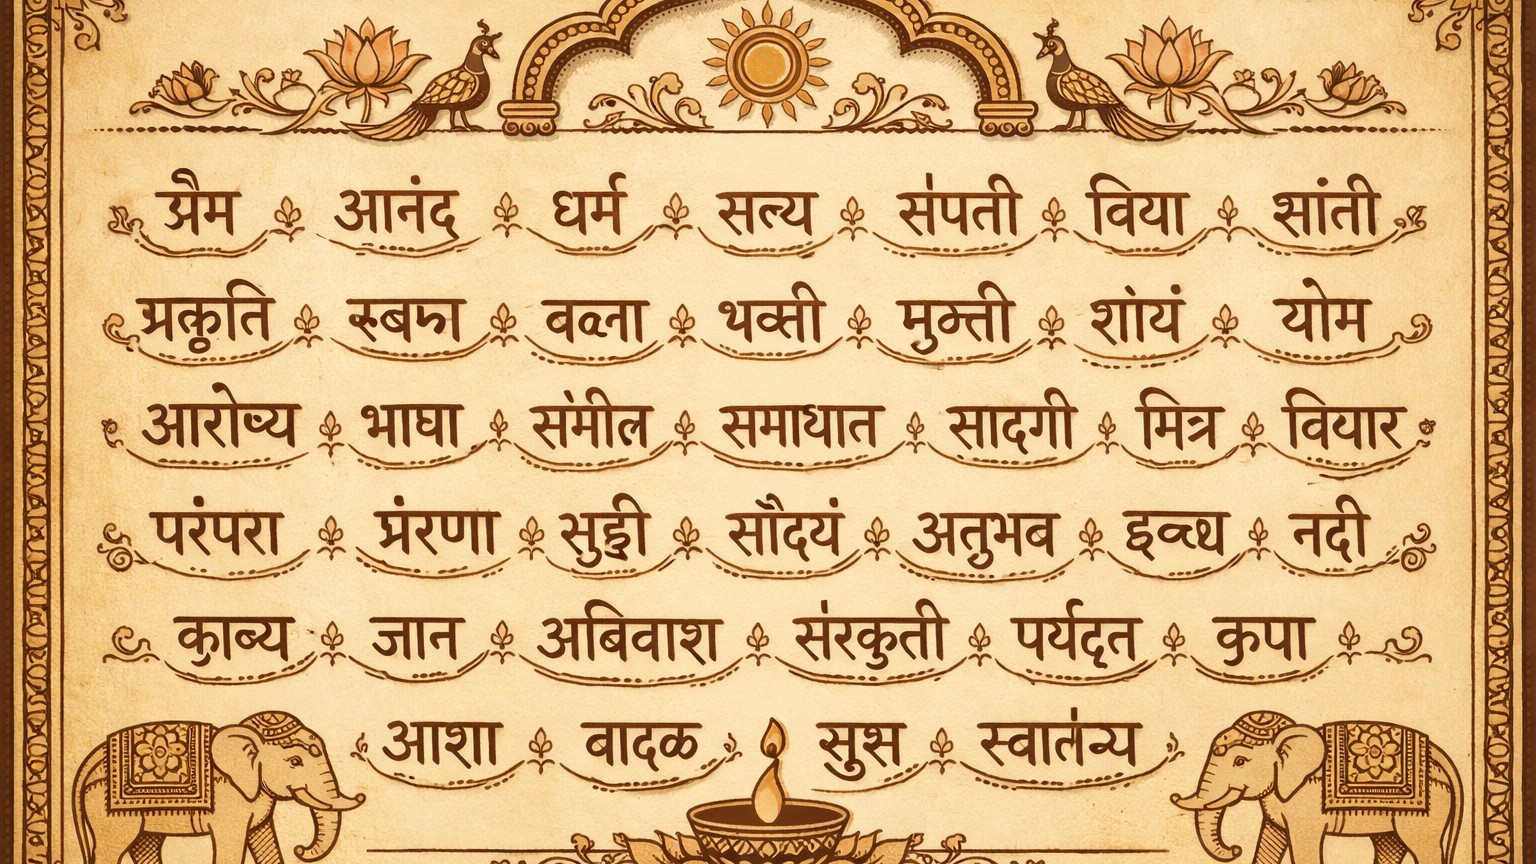 प्रैम आनंद धर्म सत्य संपती विया सांती
प्रकृति वना थक्ती मुक्ती शांयं योम
आरोष्य भाघा संमील समाधात सादगी मित्र वियार
परंपरा प्रंरणा सौदयं अतुभब नदी
काव्य जान अबिवाश संरकुती पर्यदृत कृपा
आशा वादळ सुस स्वातंन्य